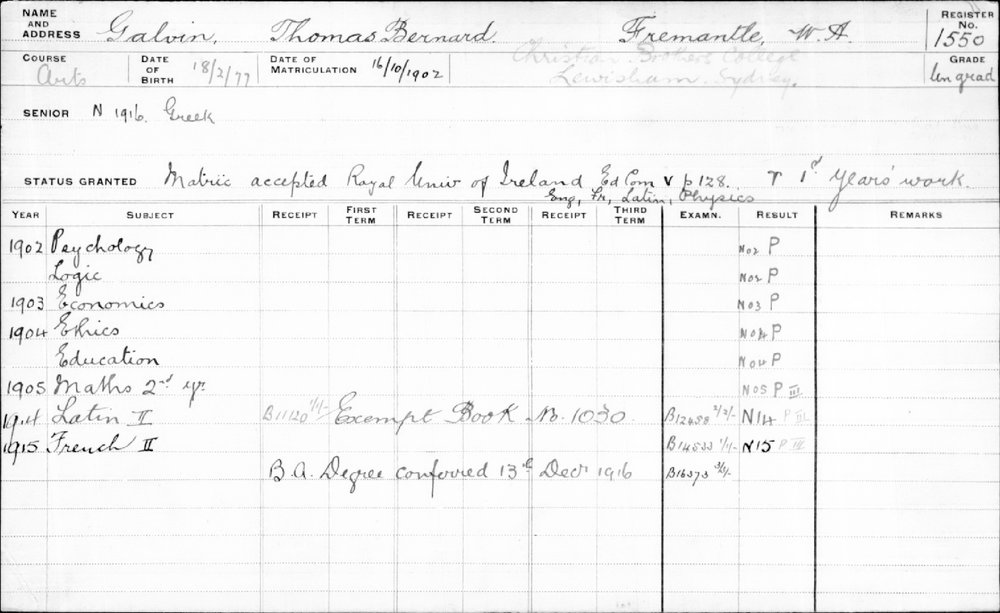 NAME AND ADDRESS Galvin, Thomas Bernard. Fremantle, W.A. REGISTER No. 1550
COURSE Arts DATE OF BIRTH 18/2/77 DATE OF MATRICULATION 16/10/1902 Christian Brothers College Lewisham. Sydney. GRADE Un grad
SENIOR N 1916. Greek
STATUS GRANTED Matric accepted Royal Univ of Ireland Ed Com V p 128. 1st Years' work.
Eng, Fr, Latin, Physics
YEAR SUBJECT RECEIPT FIRST TERM RECEIPT SECOND TERM RECEIPT THIRD TERM EXAMN. RESULT REMARKS
1902 Psychology N02 P
Logic N02 P
1903 Economics N03 P
1904 Ethics N04 P
Education N04 P
1905 Maths 2nd yr N05 P III
1914 Latin II B11120 1/1/- Exempt Book No. 1030 B12488 2/2/- N14 P III
1915 French II B14533 1/1/- N15 P III
B.A. Degree conferred 13th Decr 1916 B16373 3/3/-